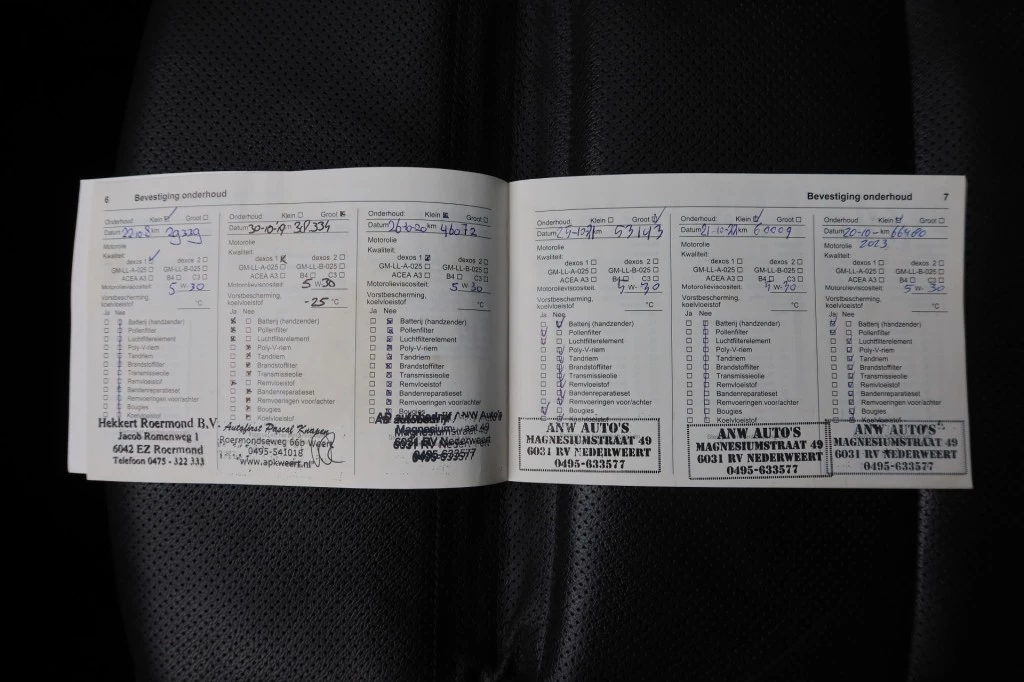 6 Bevestiging onderhoud
Onderhoud: Klein Groot
Datum km 29329
Motorolie
Kwaliteit:
dexos 1 dexos 2
GM-LL-A-025 GM-LL-B-025
ACEA A3 B4 C3
Motorolieviscositeit: 5 W-30
Vorstbescherming,
koelvloeistof °C
Ja Nee
Batterij (handzender)
Pollenfilter
Luchtfilterelement
Poly-V-riem
Tandriem
Brandstoffilter
Transmissieolie
Remvloeistof
Bandenreparatieset
Remvoeringen voor/achter
Bougies
Koelvloeistof
Hekkert Roermond B.V.
Jacob Romenweg 1
6042 EZ Roermond
Telefoon 0475 - 322 333
Onderhoud: Klein Groot
Datum 30-10-19 km 38.334
Motorolie
Kwaliteit:
dexos 1 dexos 2
GM-LL-A-025 GM-LL-B-025
ACEA A3 B4 C3
Motorolieviscositeit: 5 W-30
Vorstbescherming,
koelvloeistof -25 °C
Ja Nee
Batterij (handzender)
Pollenfilter
Luchtfilterelement
Poly-V-riem
Tandriem
Brandstoffilter
Transmissieolie
Remvloeistof
Bandenreparatieset
Remvoeringen voor/achter
Bougies
Koelvloeistof
Autofirst Pascal Knapen
Roermondseweg 66b Weert
0495-541018
www.apkweert.nl
Onderhoud: Klein Groot
Datum 26-10-20 km 46072
Motorolie
Kwaliteit:
dexos 1 dexos 2
GM-LL-A-025 GM-LL-B-025
ACEA A3 B4 C3
Motorolieviscositeit: 5 W-30
Vorstbescherming,
koelvloeistof °C
Ja Nee
Batterij (handzender)
Pollenfilter
Luchtfilterelement
Poly-V-riem
Tandriem
Brandstoffilter
Transmissieolie
Remvloeistof
Bandenreparatieset
Remvoeringen voor/achter
Bougies
autobedrijf ANW Auto's
Magnesiumstraat 49
6031 RV Nederweert
0495-633577
Bevestiging onderhoud 7
Onderhoud: Klein Groot
Datum km 53143
Motorolie
Kwaliteit:
dexos 1 dexos 2
GM-LL-A-025 GM-LL-B-025
ACEA A3 B4 C3
Motorolieviscositeit: W-30
Vorstbescherming,
koelvloeistof °C
Ja Nee
Batterij (handzender)
Pollenfilter
Luchtfilterelement
Poly-V-riem
Tandriem
Brandstoffilter
Transmissieolie
Remvloeistof
Bandenreparatieset
Remvoeringen voor/achter
Bougies
ANW AUTO'S
MAGNESIUMSTRAAT 49
6031 RV NEDERWEERT
0495-633577
Onderhoud: Klein Groot
Datum 21-10-22 km 60009
Motorolie
Kwaliteit:
dexos 1 dexos 2
GM-LL-A-025 GM-LL-B-025
ACEA A3 B4 C3
Motorolieviscositeit: W-30
Vorstbescherming,
koelvloeistof °C
Ja Nee
Batterij (handzender)
Pollenfilter
Luchtfilterelement
Poly-V-riem
Tandriem
Brandstoffilter
Transmissieolie
Remvloeistof
Bandenreparatieset
Remvoeringen voor/achter
Bougies
Koelvloeistof
ANW AUTO'S
MAGNESIUMSTRAAT 49
6031 RV NEDERWEERT
0495-633577
Onderhoud: Klein Groot
Datum 20-10- km 66480
Motorolie 2023
Kwaliteit:
dexos 1 dexos 2
GM-LL-A-025 GM-LL-B-025
ACEA A3 B4 C3
Motorolieviscositeit: 5 W-30
Vorstbescherming,
koelvloeistof °C
Ja Nee
Batterij (handzender)
Pollenfilter
Luchtfilterelement
Poly-V-riem
Tandriem
Brandstoffilter
Transmissieolie
Remvloeistof
Bandenreparatieset
Remvoeringen voor/achter
Bougies
ANW AUTO'S
MAGNESIUMSTRAAT 49
6031 RV NEDERWEERT
0495-633577